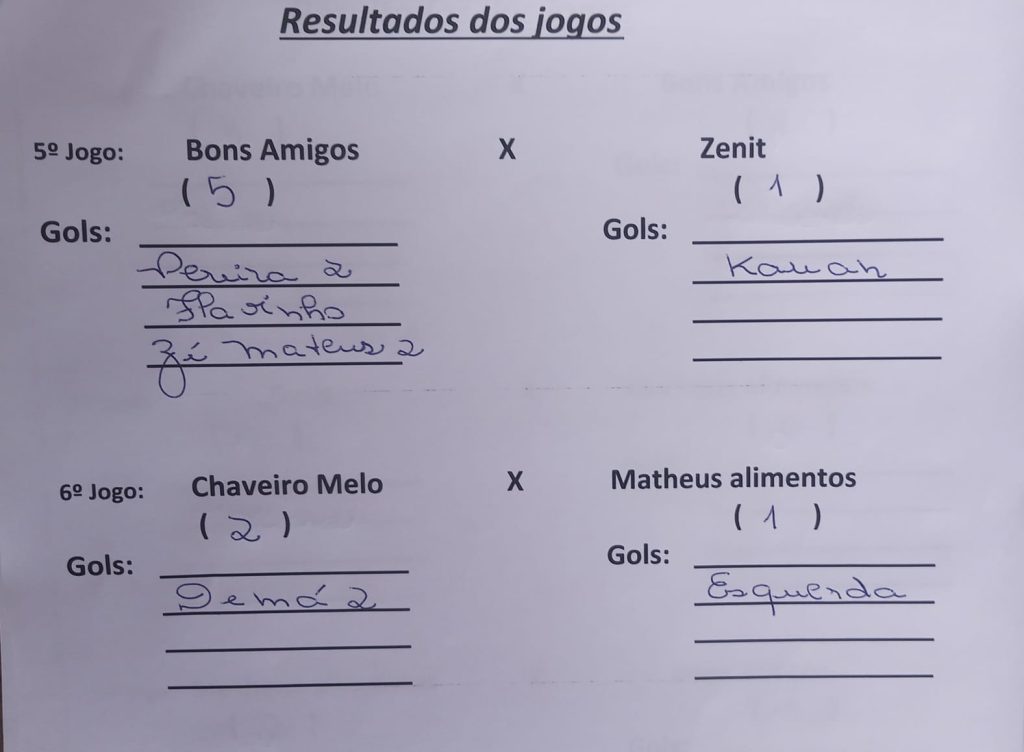 Resultados dos jogos
5º Jogo: Bons Amigos X Zenit
( 5 ) ( 1 )
Gols: Gols:
Pereira 2 Kauan
Flavinho
Zé Mateus 2
6º Jogo: Chaveiro Melo X Matheus alimentos
( 2 ) ( 1 )
Gols: Gols:
Demá 2 Esquerda